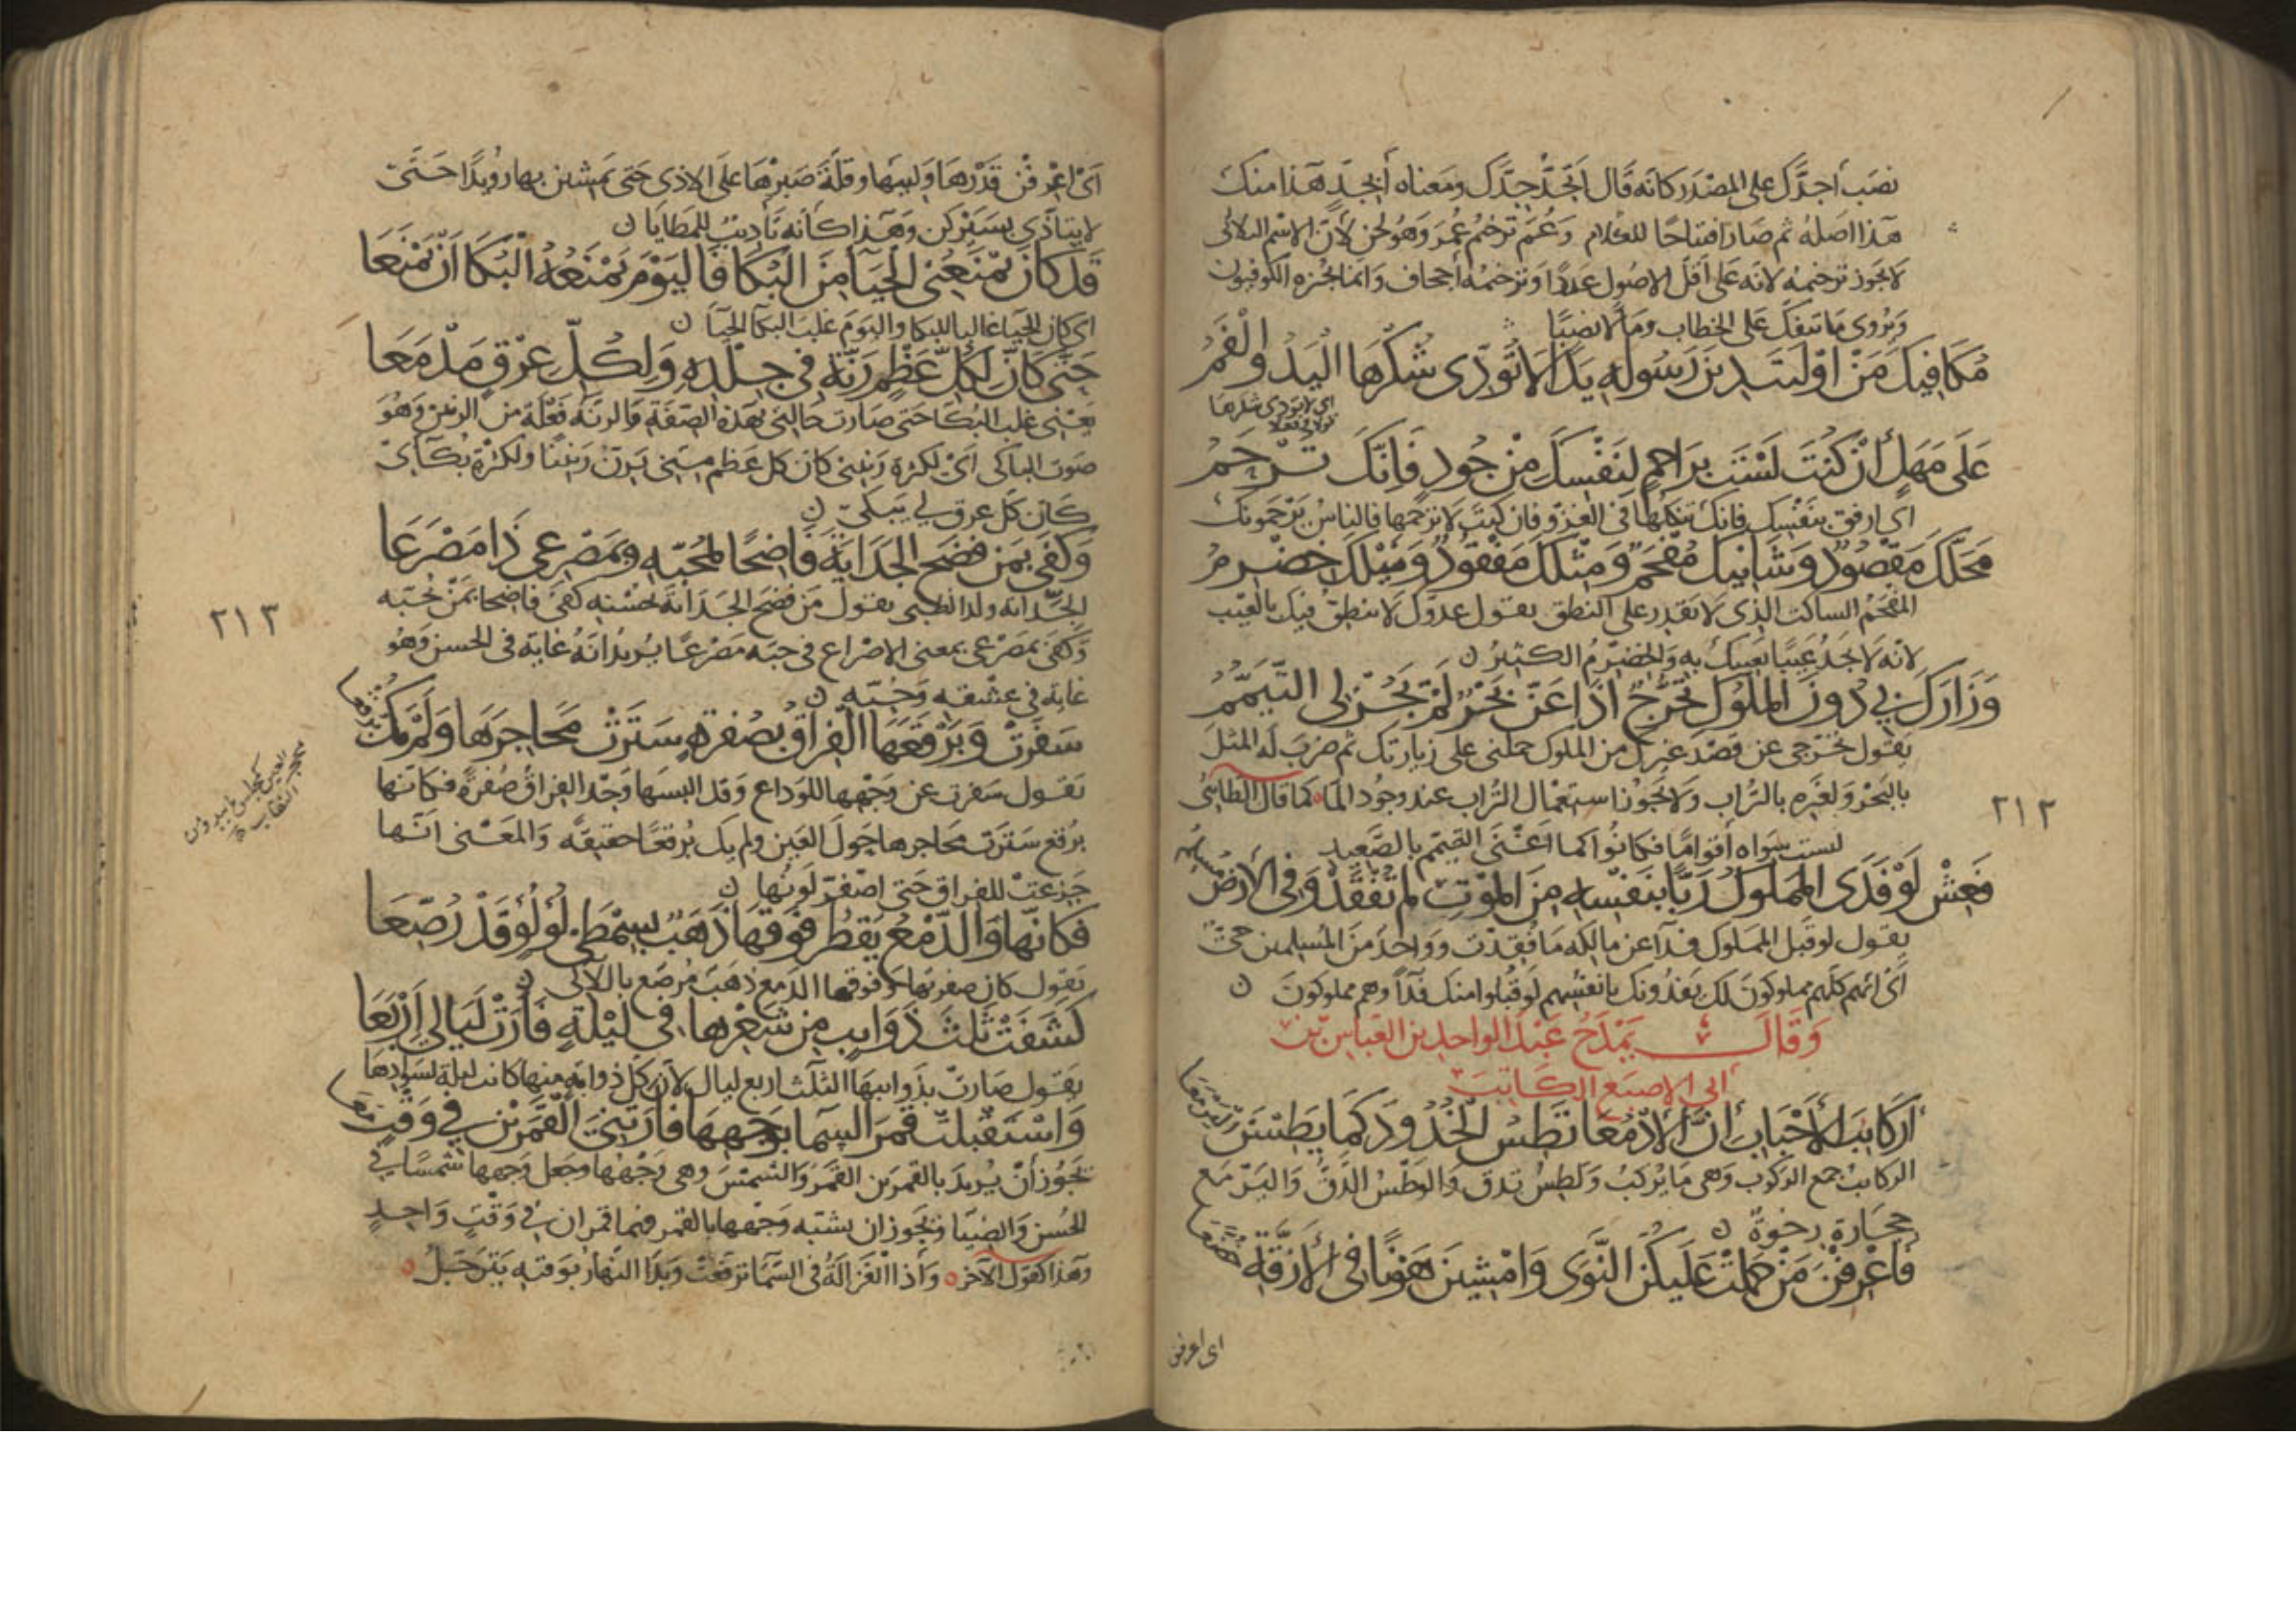 نصَب اجدَّك على المصْدَر كانه قال اتجدّ جدَّك ومَعناه أبجدٍّ هَذا منك
هَذا اصلهُ ثم صَار افتتاحًا للكلام وَعُمَ ترخيم عُمَرَ وَهُو لحن لأنّ الاسْم الثلاثى
لا يجَوز ترخيمه لانه عَلى أقلّ الاصُول عدَدًا وترخيمه اجحاف وَانما يُجيزه الكوفيون
وَيُروى مَا تنفكّ على الخطاب ومَالًا نصبًا
مُكَافِيكَ مَنْ اوْليَتَ دينَ رَسُولهِ يَدًا لَا تُؤدّى شكْرَها اليَدُ وَالْفَمُ
اى لا يؤدى شكرها
عَلَى مَهَلٍ أنْ كُنتَ لَسْتَ برَاحمٍ لنَفْسِكَ مِنْ جُودٍ فَإنّكَ تُرْحَمُ
اى ارفق بنَفْسِك فانك تتكلها فى الغزو فان كنتَ لا ترحمها فالناسُ يَرْحَمونك
مَحَلّكَ مَقصُودٌ وَشَانيكَ مُفْحَمٌ وَمثلكَ مَفْقُودٌ وَنَيْلكَ خِضْرِمُ
المفحَمُ الساكت الذى لا يَقدِر على النطق يقول عدوّك لا ينطقُ فيك بالعَيْب
لانه لا يجدُ عَيبًا يَعيبك به وَالخضرمُ الكثيرُ ن
وَزَارَكَ بى دُونَ الملُوكِ تحَرُّجٌ اذَا عَنّ بَحْرٌ لَمْ يَجُزْ لى التّيَمّمُ
يقول تحَرّجى عن قصْد غيرك من الملوك حملنى على زيارتك ثم ضَربَ لهُ المثلَ
بالبَحْر وَلغيره بالتُراب وَلا يجَوزُ استعمال التُراب عند وجُود الما كما قال الطائى
لبست سِوَاه أقوامًا فكانُوا كما اغنَى التيمّم بالصَّعيد
فَعِشْ لَوْ فَدَى المَملوكُ رَبًّا بنَفْسِه مِنَ المَوْتِ لم تُفْقَدْ وَفى الأرضِ مُسْلمُ
يقول لو قبل المملوك فدآءً عن مالكه مَا فُقِدْتَ وواحدٌ منَ المُسلمين حىّ
اىْ انهم كلهم مملوكونَ لك يَفدُونك بانفسهم لو قُبلوا منك فدآءً وهم مملوكونَ ن
وَقَالَ يَمْدَحُ عَبْدَ الواحد بن العَبّاس بن
ابى الاصبع الكَاتبَ
أرَكَائبَ الأحْبَابِ انّ الأدْمُعَا تَطِسُ الخُدُودَ كَمَا يَطِسْنَ اليَرْمَعَا
الركائبُ جمع الركوب وَهى مَا يُركبُ وَتطسُ تدق وَالوطسُ الدّقُ وَاليَرْمَع
حجَارة رخوةٌ ن
فَاعْرِفْنَ مَنْ حَمَلَتْ عَلَيكُنّ النّوَى وَامْشِينَ هَوْنًا فى الأزِمّةِ خُضّعَا
اى اعرفن
٢١٢
اىْ اعْرِفْنَ قَدْرهَا وَلينَها وقلّةَ صَبرْهَا على الاذى حَتى تَمشين بها رويْدًا حَتّى
لا يتأذّى بسَيْركن وَهَذا كأنه تأديبٌ للمَطايا ن
قَدْ كانَ يمْنَعُنى الحيَآ مِنَ البُكَا فَاليَوْمَ يَمْنَعُهُ البُكَا أنْ يَمْنَعَا
اى كان الحيَاء غالبا للبكا واليَومَ غلبَ البكا الحيآءَ ن
حَتّى كَأنّ لِكلّ عَظْمٍ رَنّةً فى جِلْدِهِ وَلِكُلّ عِرْقٍ مَدْمَعَا
يَعنى غلب البُكا حَتى صَارت حالتى بهذه الصّفَة وَالرنّه فَعْلة من الرنين وَهُوَ
صَوت الباكى اىْ لكثرة رَنينى كان كل عَظم مِنّى يَرنّ رَنينًا ولكثرة بُكآئى
كان كلّ عرق لى يبَكى ن
وَكَفَى بمَنْ فَضَحَ الجَدَايَةَ فَاضِحًا لمُحبّهِ وَبمَصْرعى ذَا مَصْرَعَا
الجَدايَة ولد الظبى يقول مَنْ فضح الجَدَايَة بحُسْنه كفى فاضحا بمَنْ يُحبّه
وَكفى بمَصْرعى بمعنى الاصْراع فى حبّه مَصْرعًا يُريدُ انّهُ غايَة فى الحسن وَهُو
غاية فى عشْقه وَحُبّه ن
سَفَرَتْ وَبَرْقَعَهَا الفِرَاقُ بصُفرةٍ سَتَرَتْ مَحَاجرَهَا وَلَمْ تَكُ بُرْقعَا
يَقول سَفرت عن وَجْهها للوَداع وَقد البسَها وَجْدُ الفِراق صُفرةً فكانها
بُرقع سَتَرت محَاجرها حَولَ العَين ولم يك بُرقعًا حقيقةً وَالمعْنى انّها
جَزعتْ للفراق حَتى اصْفرّ لونُها ن
فكَأنّهَا وَالدّمْعُ يَقطُر فوْقهَا ذَهَبٌ بسِمْطَىْ لُؤلُؤ قَدْ رُصّعَا
يَقول كان صفرتها وَفوقها الدّمع ذهَبٌ مُرصّع باللآلى ن
كَشَفَتْ ثَلثَ ذَوَايبٍ مِن شَعْرِها فى لَيْلةٍ فَأرَتْ لَيَالىَ أرْبَعَا
يقول صَارتْ بذَوائبها الثلث اربع ليال لأن كل ذوابةٍ منها كانت ليلة لسَوادهَا
وَاسْتَقْبَلتْ قَمَرَ السّما بوَجْهِهَا فأرَتْنىَ القَمَرَيْنِ فى وَقْتٍ مَعَا
يَجُوز أنْ يُريدَ بالقمَرين القمَرَ وَالشمسَ وهى وَجْهُها وجَعل وَجهها شمسًا فى
الحُسن وَالضيَا وَيجوز ان يشبّه وَجْهها بالقمر فهما قمران فى وَقتٍ وَاحدٍ
وَهذا كقول الآخر وَاذا الغَزالةُ فى السّمآ ترفّعَتْ وَبدَا النّهارُ لوَقته يَترَجّلُ
٢١٣